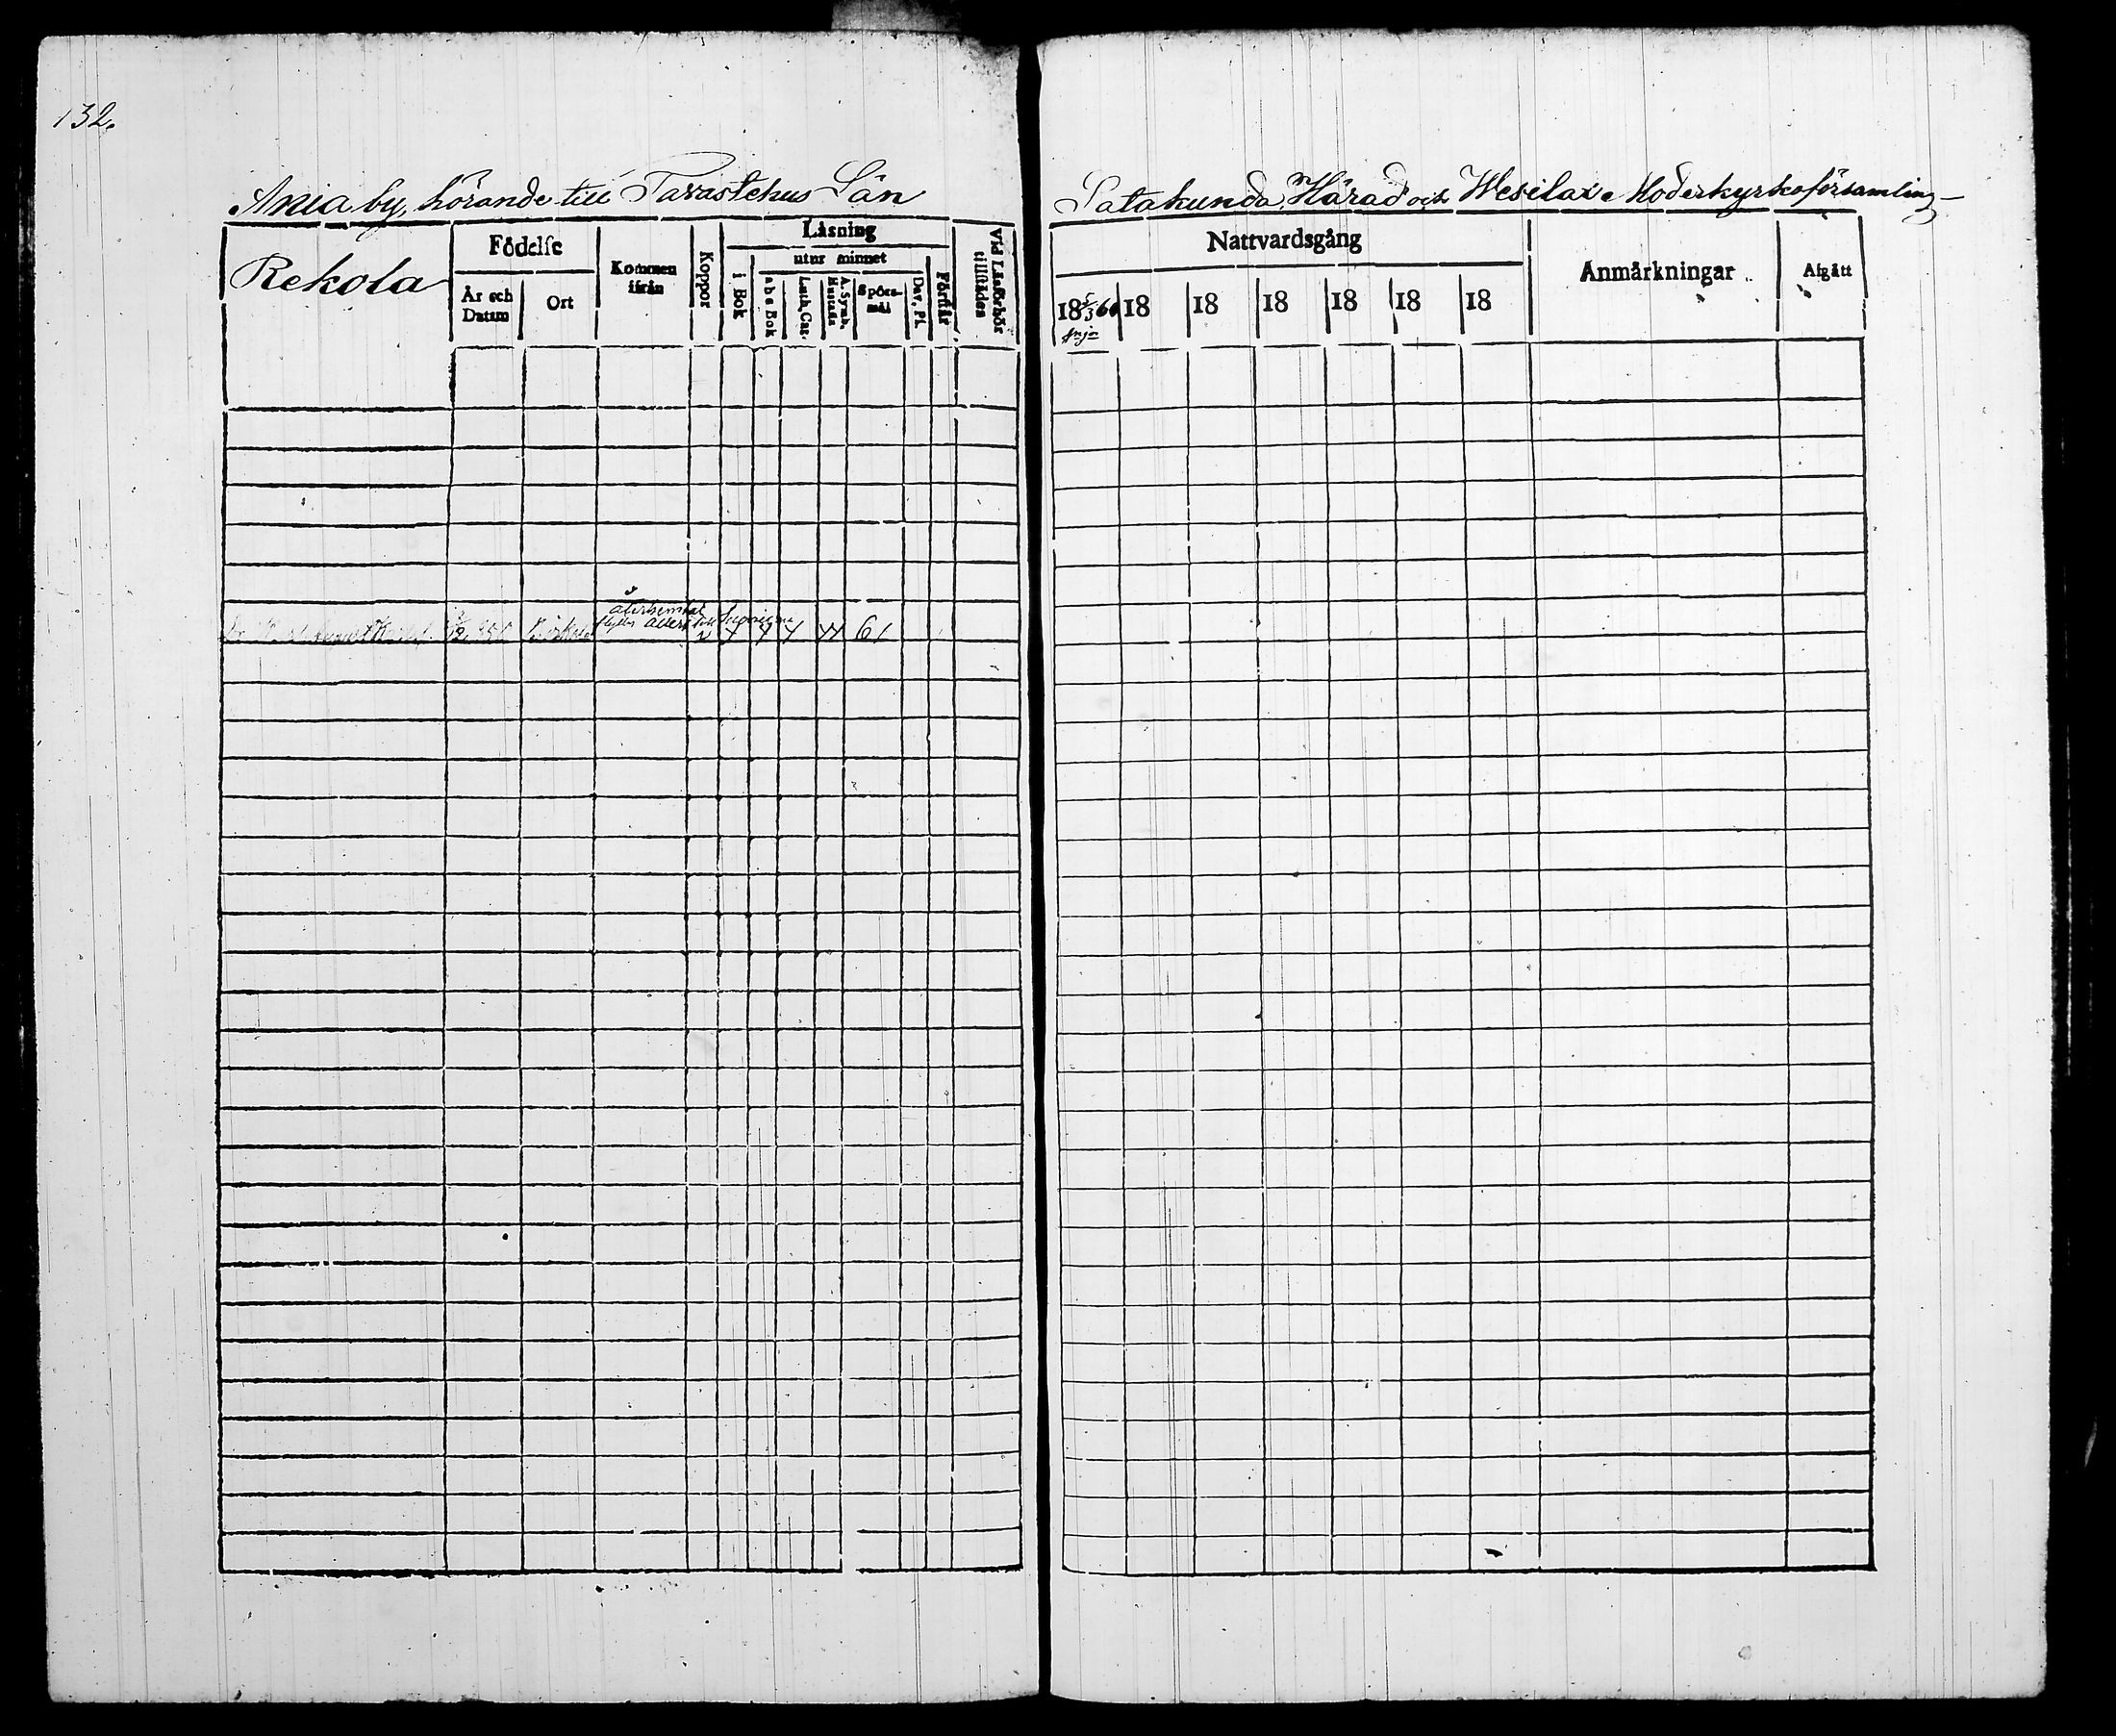 132.
Ania by, hörande till Tavastehus Län
Satakunda Härad och Wesilax Moderkyrkoförsamling
Rekola
Födelse
År och Datum
Ort
Kommen ifrån
Koppor
Läsning
i Bok
utur minnet
abc Bok
Luth. Cat.
A. Symb. Hustafl.
Spörsmål
Dav. Ps.
Förstår
Vid Läsförhör tillstädes
Nattvardsgång
18 18 18 18 18 18 18
Anmärkningar
Afgått
August
61